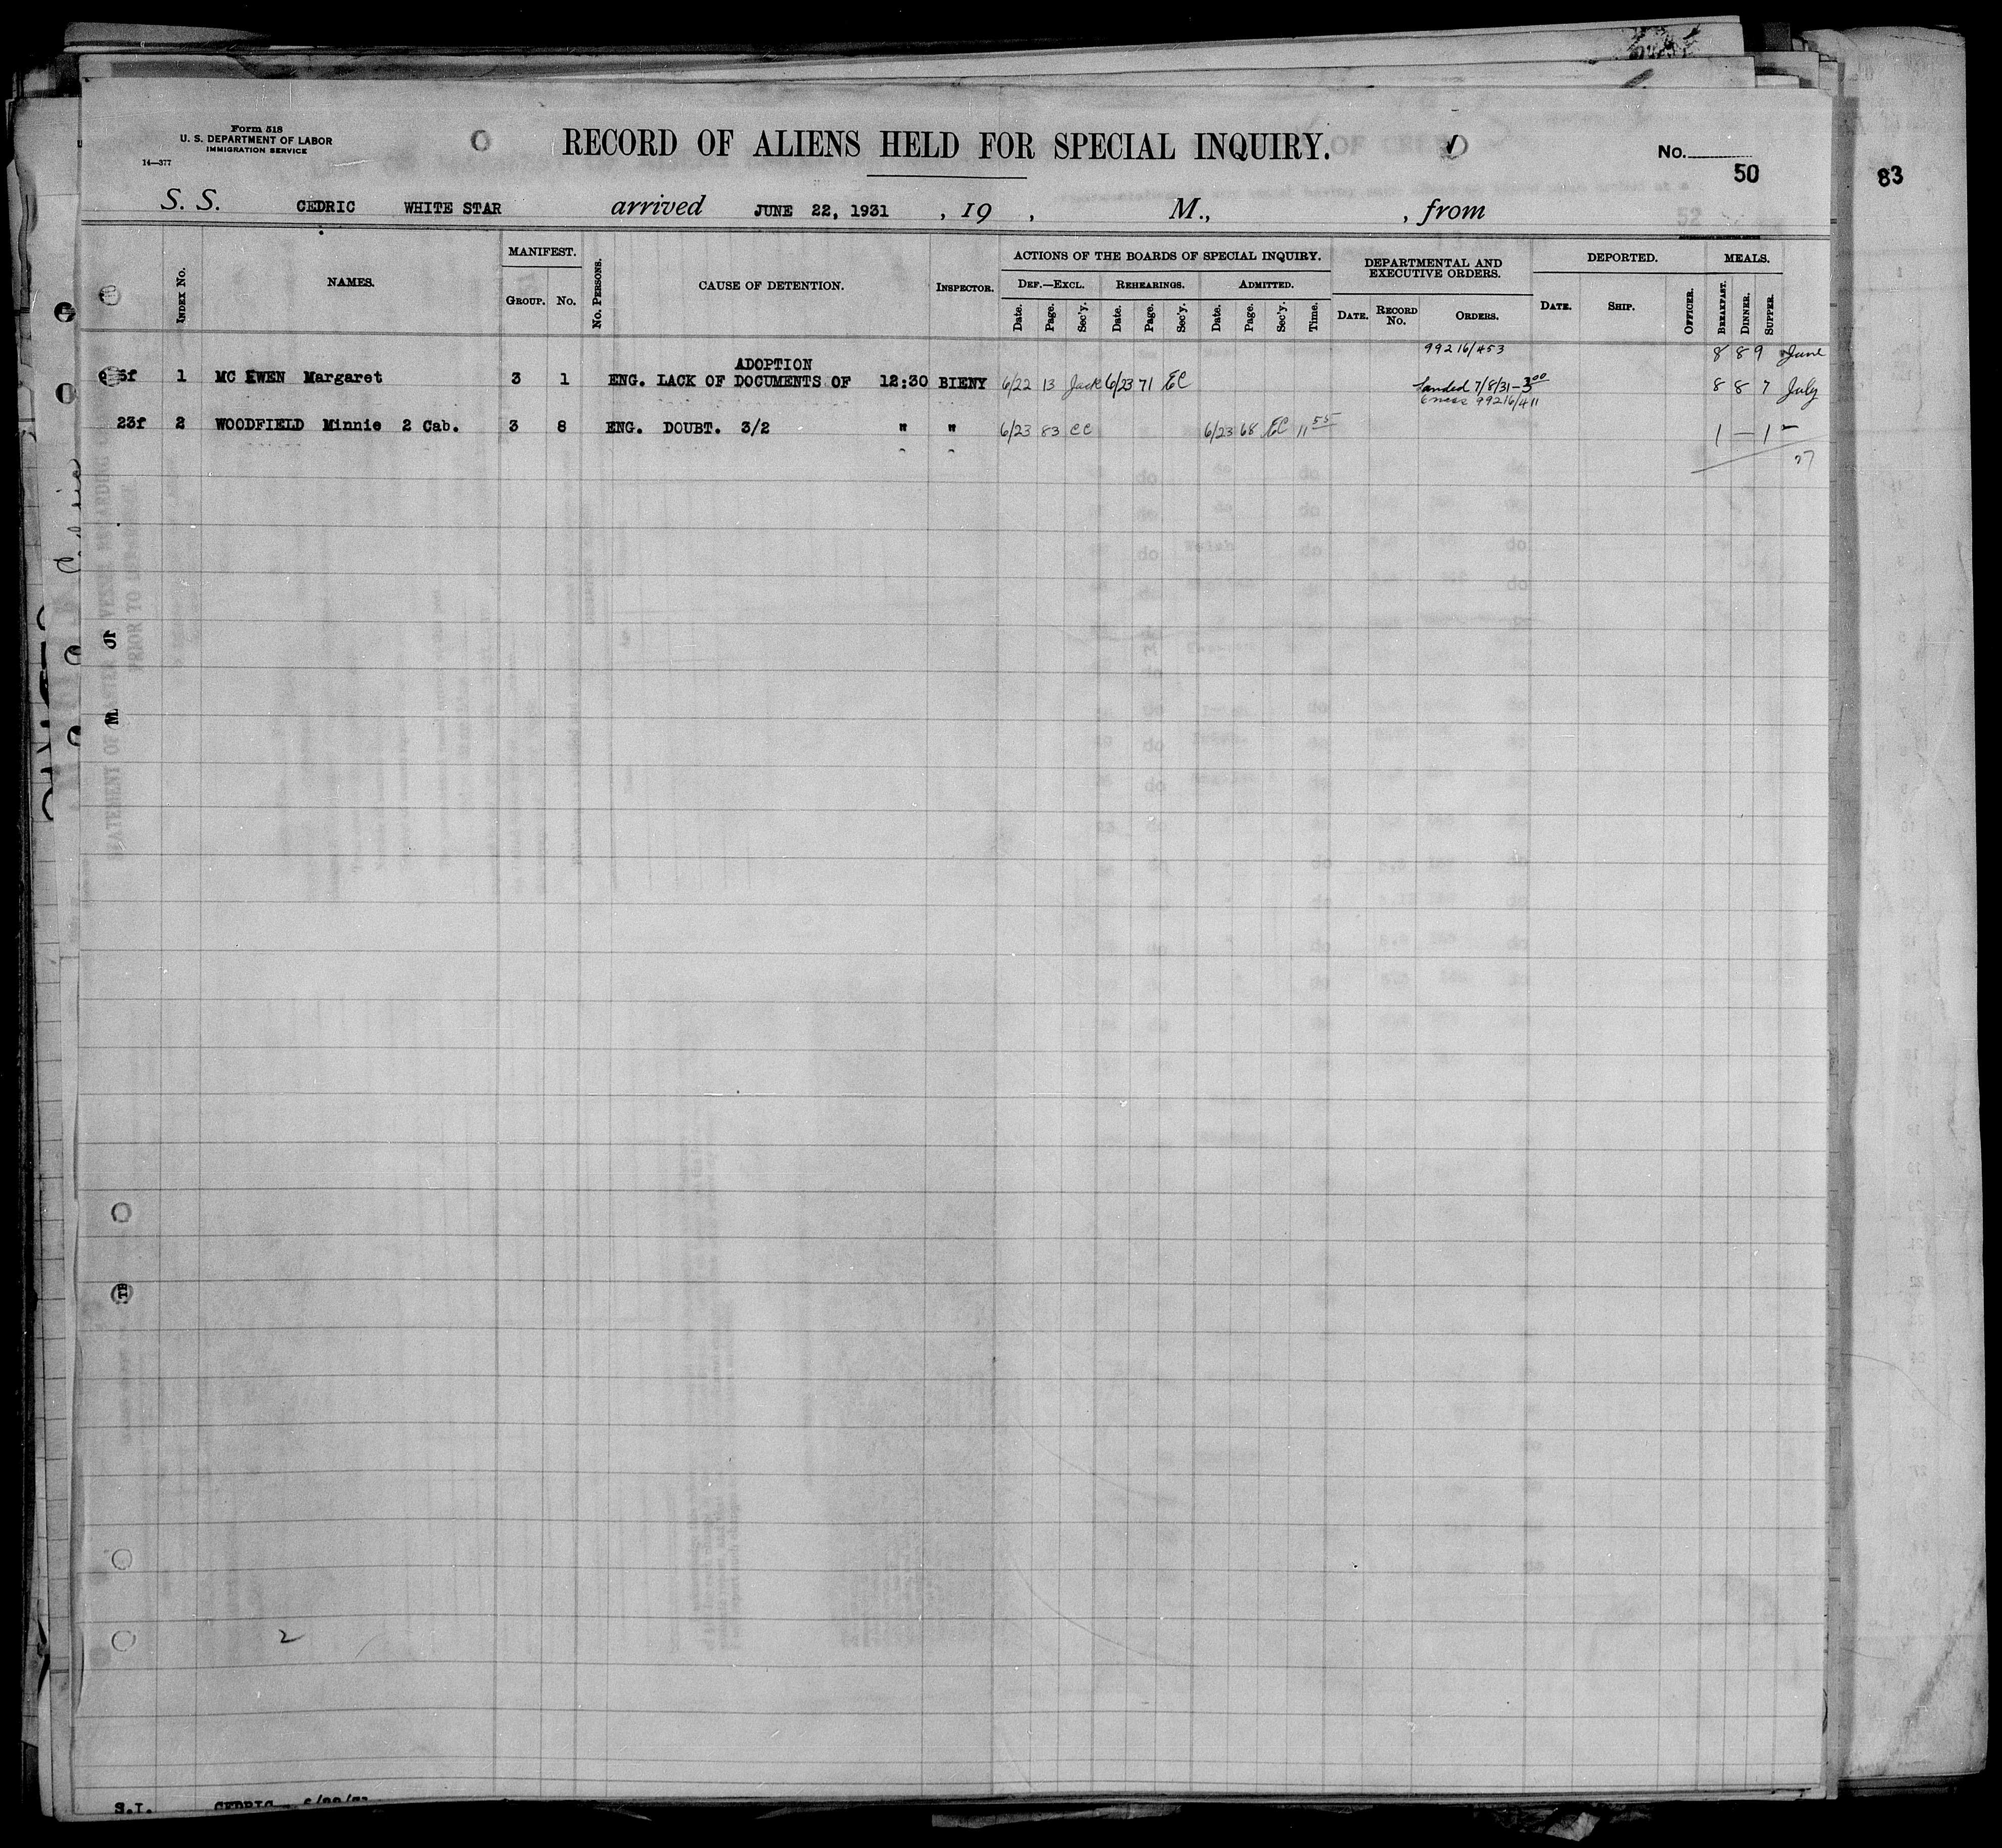 Form 518
U. S. DEPARTMENT OF LABOR
IMMIGRATION SERVICE
14—377
RECORD OF ALIENS HELD FOR SPECIAL INQUIRY.
No.
50
83
S. S. CEDRIC WHITE STAR arrived JUNE 22, 1931 , 19 , M., , from
52
INDEX No.
NAMES.
MANIFEST.
GROUP. No.
No. PERSONS.
CAUSE OF DETENTION.
INSPECTOR.
ACTIONS OF THE BOARDS OF SPECIAL INQUIRY.
DEF.—EXCL. REHEARINGS. ADMITTED.
Date. Page. Sec'y. Date. Page. Sec'y. Date. Page. Sec'y. Time.
DEPARTMENTAL AND
EXECUTIVE ORDERS.
DATE. RECORD No. ORDERS.
DEPORTED.
DATE. SHIP. OFFICER.
MEALS.
BREAKFAST. DINNER. SUPPER.
99216/453 8 8 9 June
ADOPTION
1 MC EWEN Margaret 3 1 ENG. LACK OF DOCUMENTS OF 12:30 BIENY 6/22 13 Jack 6/23 71 EC Landed 7/8/31-3 00 8 8 7 July
99216/411
23f 2 WOODFIELD Minnie 2 Cab. 3 8 ENG. DOUBT. 3/2 " " 6/23 83 CC 6/23 68 EC 11 55 1 — 1 —
27
2
S.I. CEDRIC